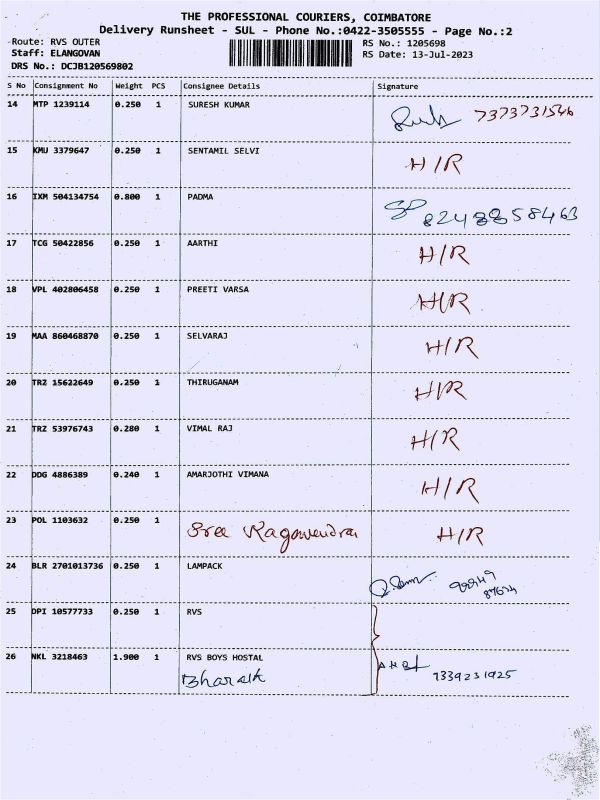 THE PROFESSIONAL COURIERS, COIMBATORE
Delivery Runsheet - SUL - Phone No.:0422-3505555 - Page No.:2
Route: RVS OUTER
RS No.: 1205698
Staff: ELANGOVAN
RS Date: 13-Jul-2023
DRS No.: DCJB120569802
S No Consignment No Weight PCS Consignee Details Signature
14 MTP 1239114 0.250 1 SURESH KUMAR 7373731546
15 KMU 3379647 0.250 1 SENTAMIL SELVI H/R
16 IXM 504134754 0.800 1 PADMA
17 TCG 50422856 0.250 1 AARTHI H/R
18 VPL 402806458 0.250 1 PREETI VARSA H/R
19 MAA 860468870 0.250 1 SELVARAJ H/R
20 TRZ 15622649 0.250 1 THIRUGANAM H/R
21 TRZ 53976743 0.280 1 VIMAL RAJ H/R
22 DDG 4886389 0.240 1 AMARJOTHI VIMANA H/R
23 POL 1103632 0.250 1 Sree Ragavendra H/R
24 BLR 2701013736 0.250 1 LAMPACK
25 DPI 10577733 0.250 1 RVS
26 NKL 3218463 1.900 1 RVS BOYS HOSTAL
Bharath 7339231925